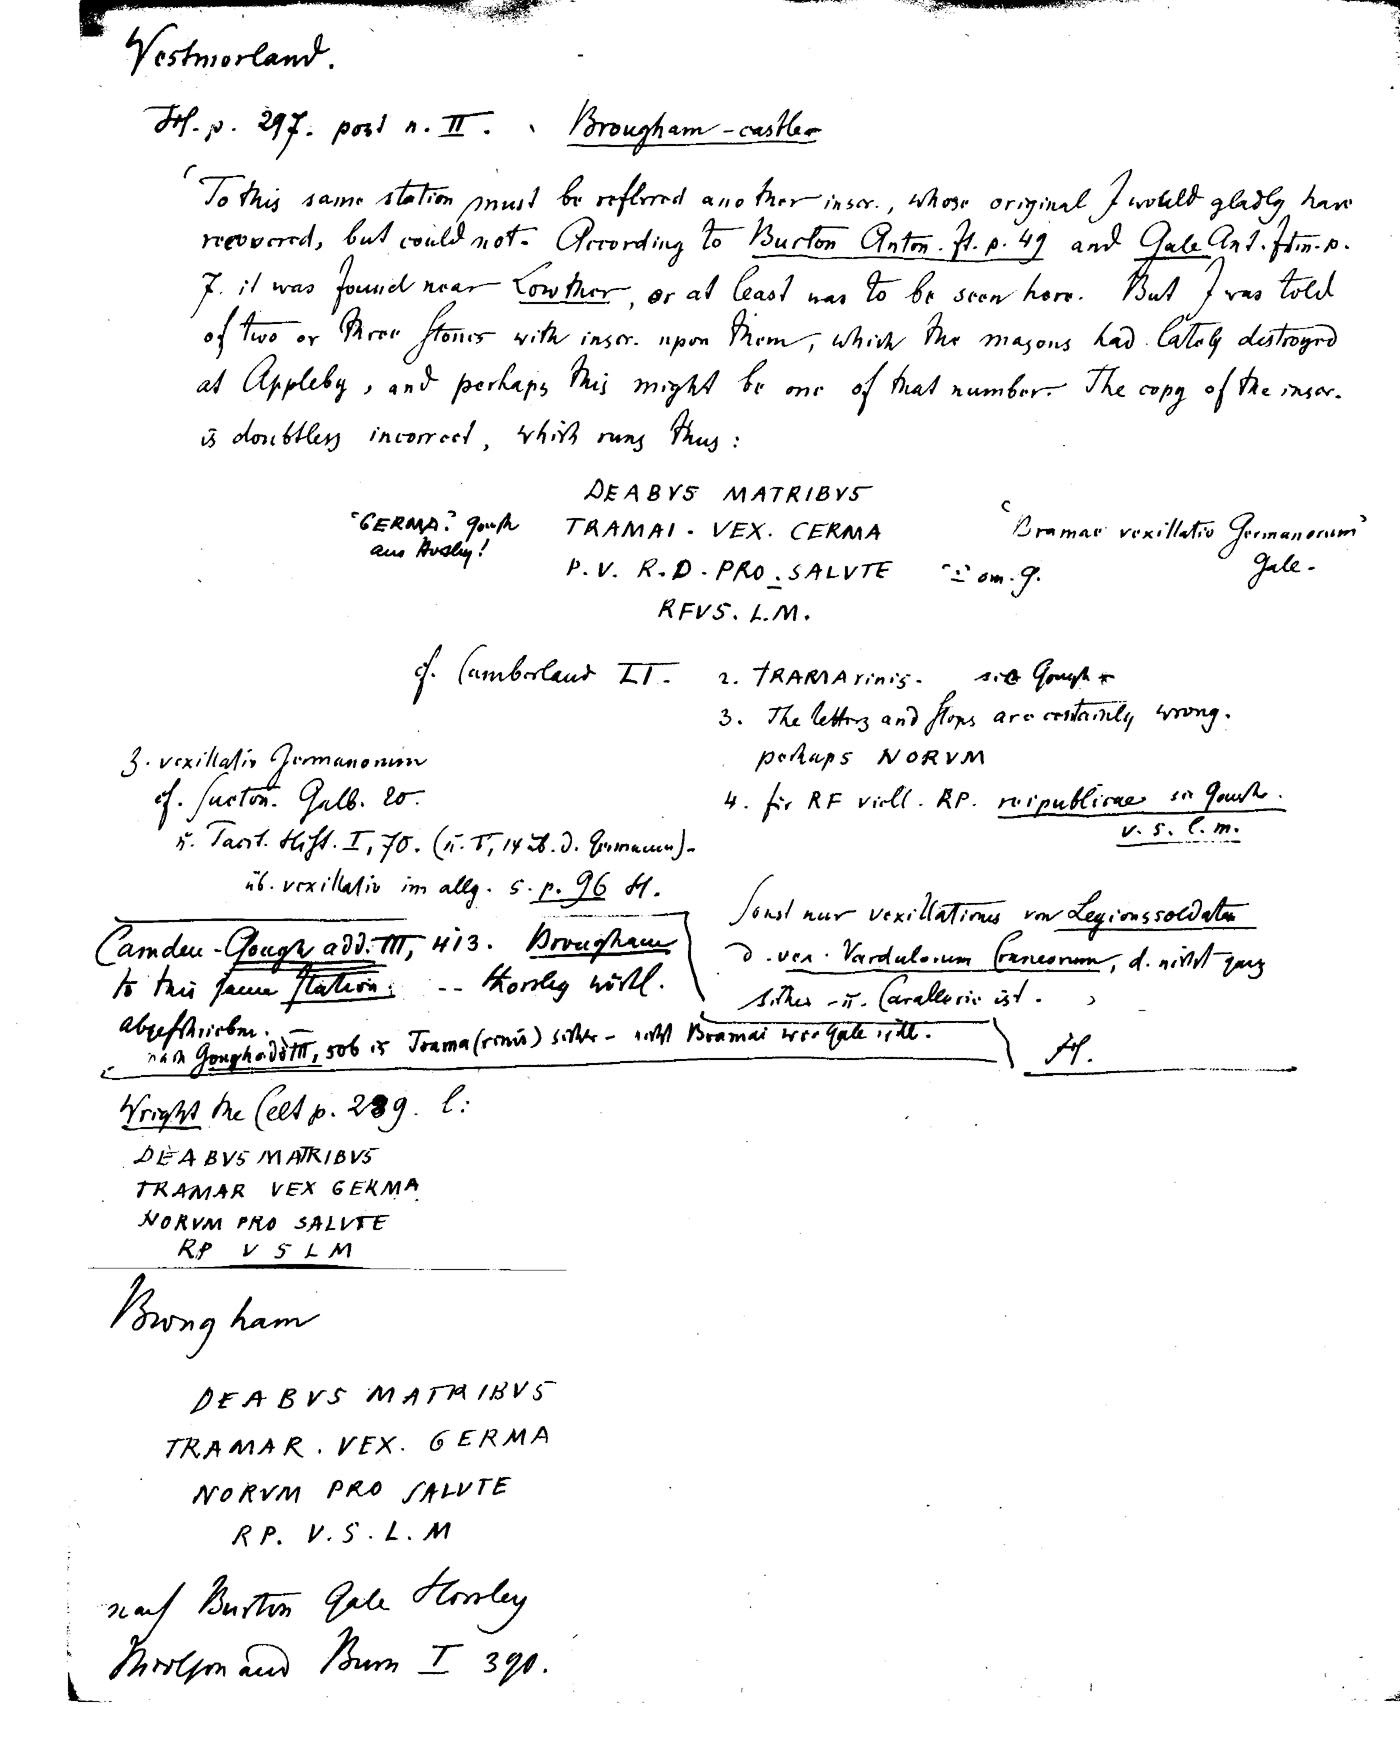 Westmorland.
H. p. 297. post n. II. Brougham-castle
'To this same station must be referred another inscr., whose original I would gladly have
recovered, but could not. According to Burton Anton. It. p. 49 and Gale Ant. Itin. p.
7. it was found near Lowther, or at least was to be seen here. But I was told
of two or three stones with inscr. upon them, which the masons had lately destroyed
at Appleby, and perhaps this might be one of that number. The copy of the inscr.
is doubtless incorrect, which runs thus:
DEABVS MATRIBVS
"GERMA". Gough TRAMAI · VEX. CERMA 'Bramae vexillatio Germanorum'
aus Horsley! P. V. R. D. PRO . SALVTE "–" om. G. Gale.
RFVS. L. M.
cf. Cumberland II. 2. TRAMArinis. sic Gough
3. The letters and stops are certainly wrong.
perhaps NORVM
3. vexillatio Germanorum
cf. Sueton. Galb. 20. 4. für RF viell. RP. reipublicae sic Gough.
v. s. l. m.
u. Tacit. Hist. I, 70.
üb. vexillatio im allg. s. p. 96 H.
Sonst nur vexillationes von Legionssoldaten
Camden-Gough add. III, 413. Brougham d. vex. Vardulorum, d. nicht ganz
to this same station: -- Horsley wörtl. sicher u. Cavallerie ist.
abgeschrieben.
nach Gough add III, 506 is Trama(rinis) sicher - nicht Bramai wie Gale will. H.
Wright the Celt p. 289. l:
DEABVS MATRIBVS
TRAMAR VEX GERMA
NORVM PRO SALVTE
RP V S L M
Brougham
DEABVS MATRIBVS
TRAMAR . VEX. GERMA
NORVM PRO SALVTE
RP. V. S. L. M
nach Burton Gale Horsley
Nicolson and Burn I 390.